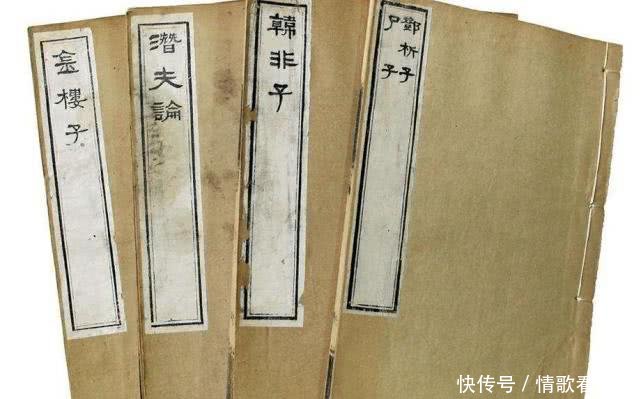 金樓子
潛夫論
韓非子
鄧析子
尸子
快传号 / 情歌看